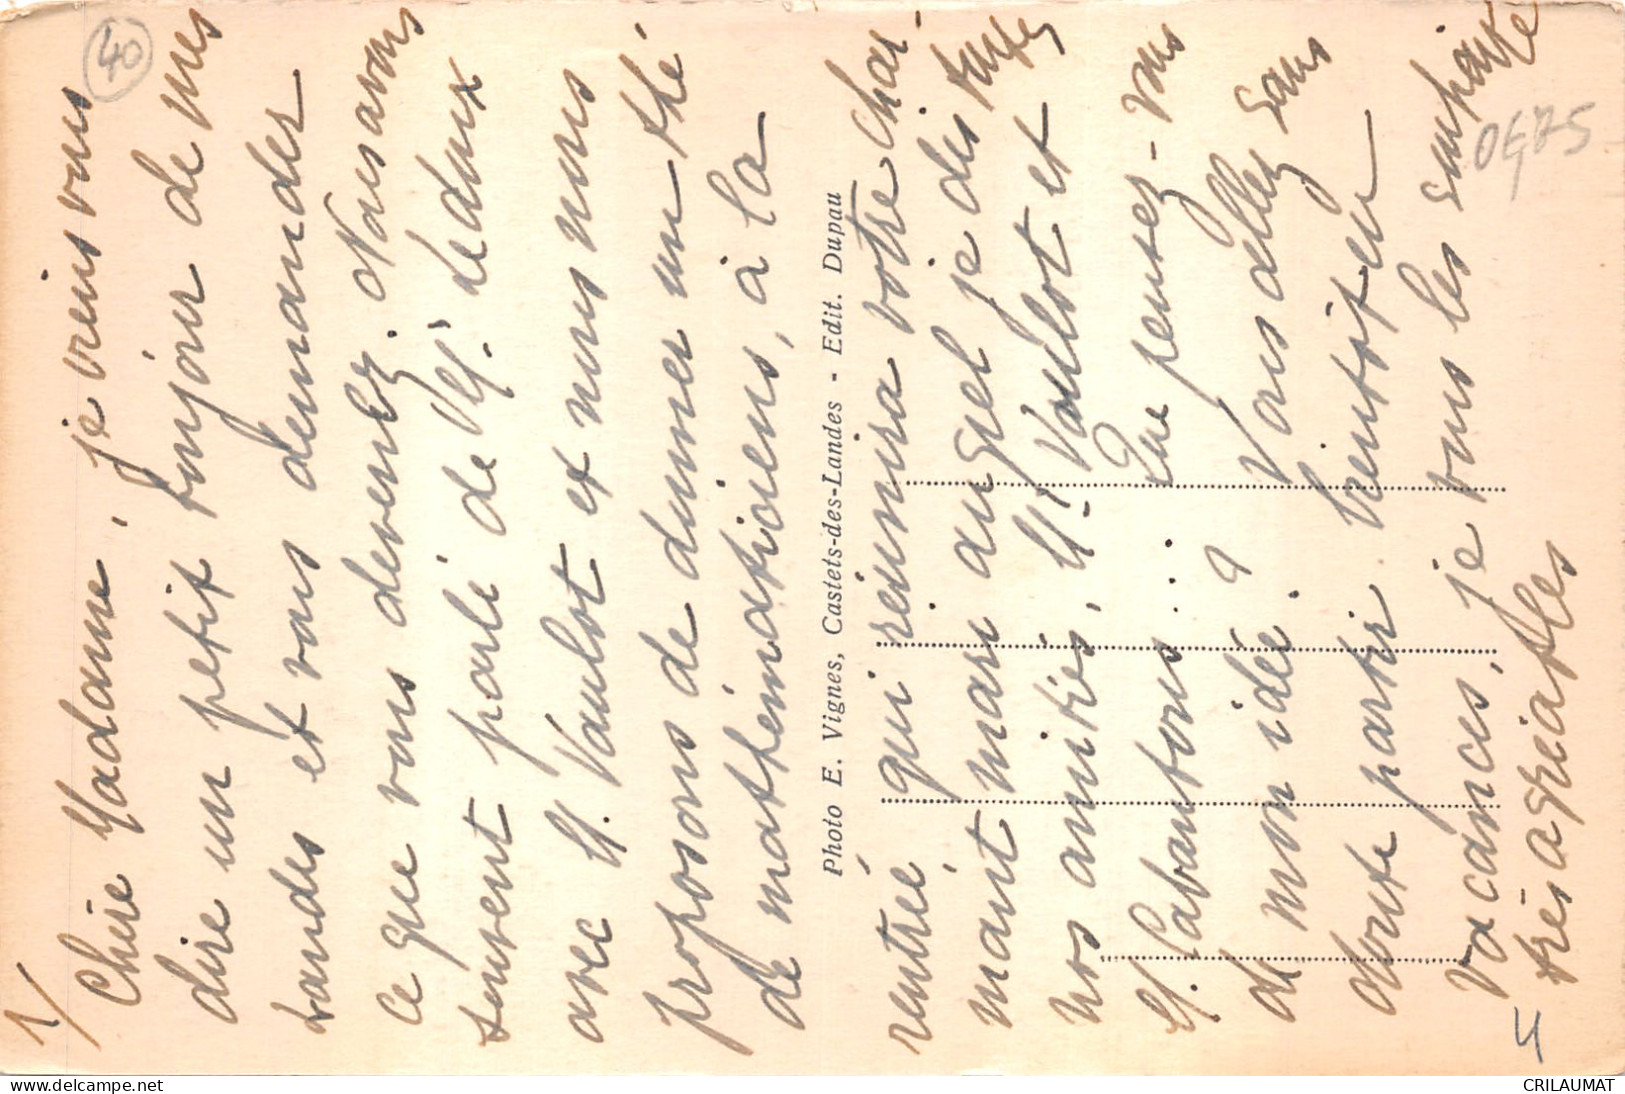 1/
Chère Madame, je viens vous
dire un petit bonjour de mes
Landes et vous demander
ce que vous devenez. Nous avons
souvent parlé de Mlle Ledoux
avec M. Vaulot et nous nous
proposons de donner un thé
de mathématiciens, à la
Photo E. Vignes, Castets-des-Landes - Edit. Dupau
rentrée, qui réunira votre char-
mant mari auquel je dis toutes
nos amitiés, M. Vaulot et
M. Labantous... Que pensez-vous
de mon idée ? Vous allez sans
doute partir bientôt en
vacances, je vous les souhaite
très agréables
40
0475
4
CRILAUMAT